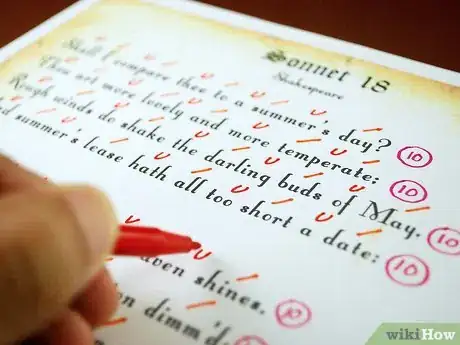 Sonnet 18
Shakespeare
Shall I compare thee to a summer's day? 10
Thou art more lovely and more temperate: 10
Rough winds do shake the darling buds of May. 10
summer's lease hath all too short a date: 10
shines. 10
dimm'd.
wikiHow